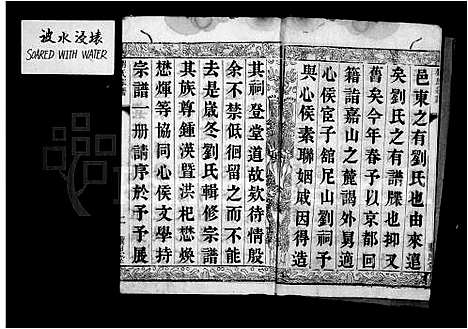 被水浸壞
SOARED WITH WATER
邑東之有劉氏也由來遠
矣劉氏之有譜牒也抑又
舊矣今年春予以京都回
籍詣嘉山之麓謁外舅適
心侯宦子館足山劉祠予
與心侯素聯姻戚因得造
其祠登堂道故欸待情殷
余不禁低徊留之而不能
去是歲冬劉氏輯修宗譜
其族尊鍾漢暨洪杞懋煥
懋煇等協同心侯文學持
宗譜一冊請序於予予展